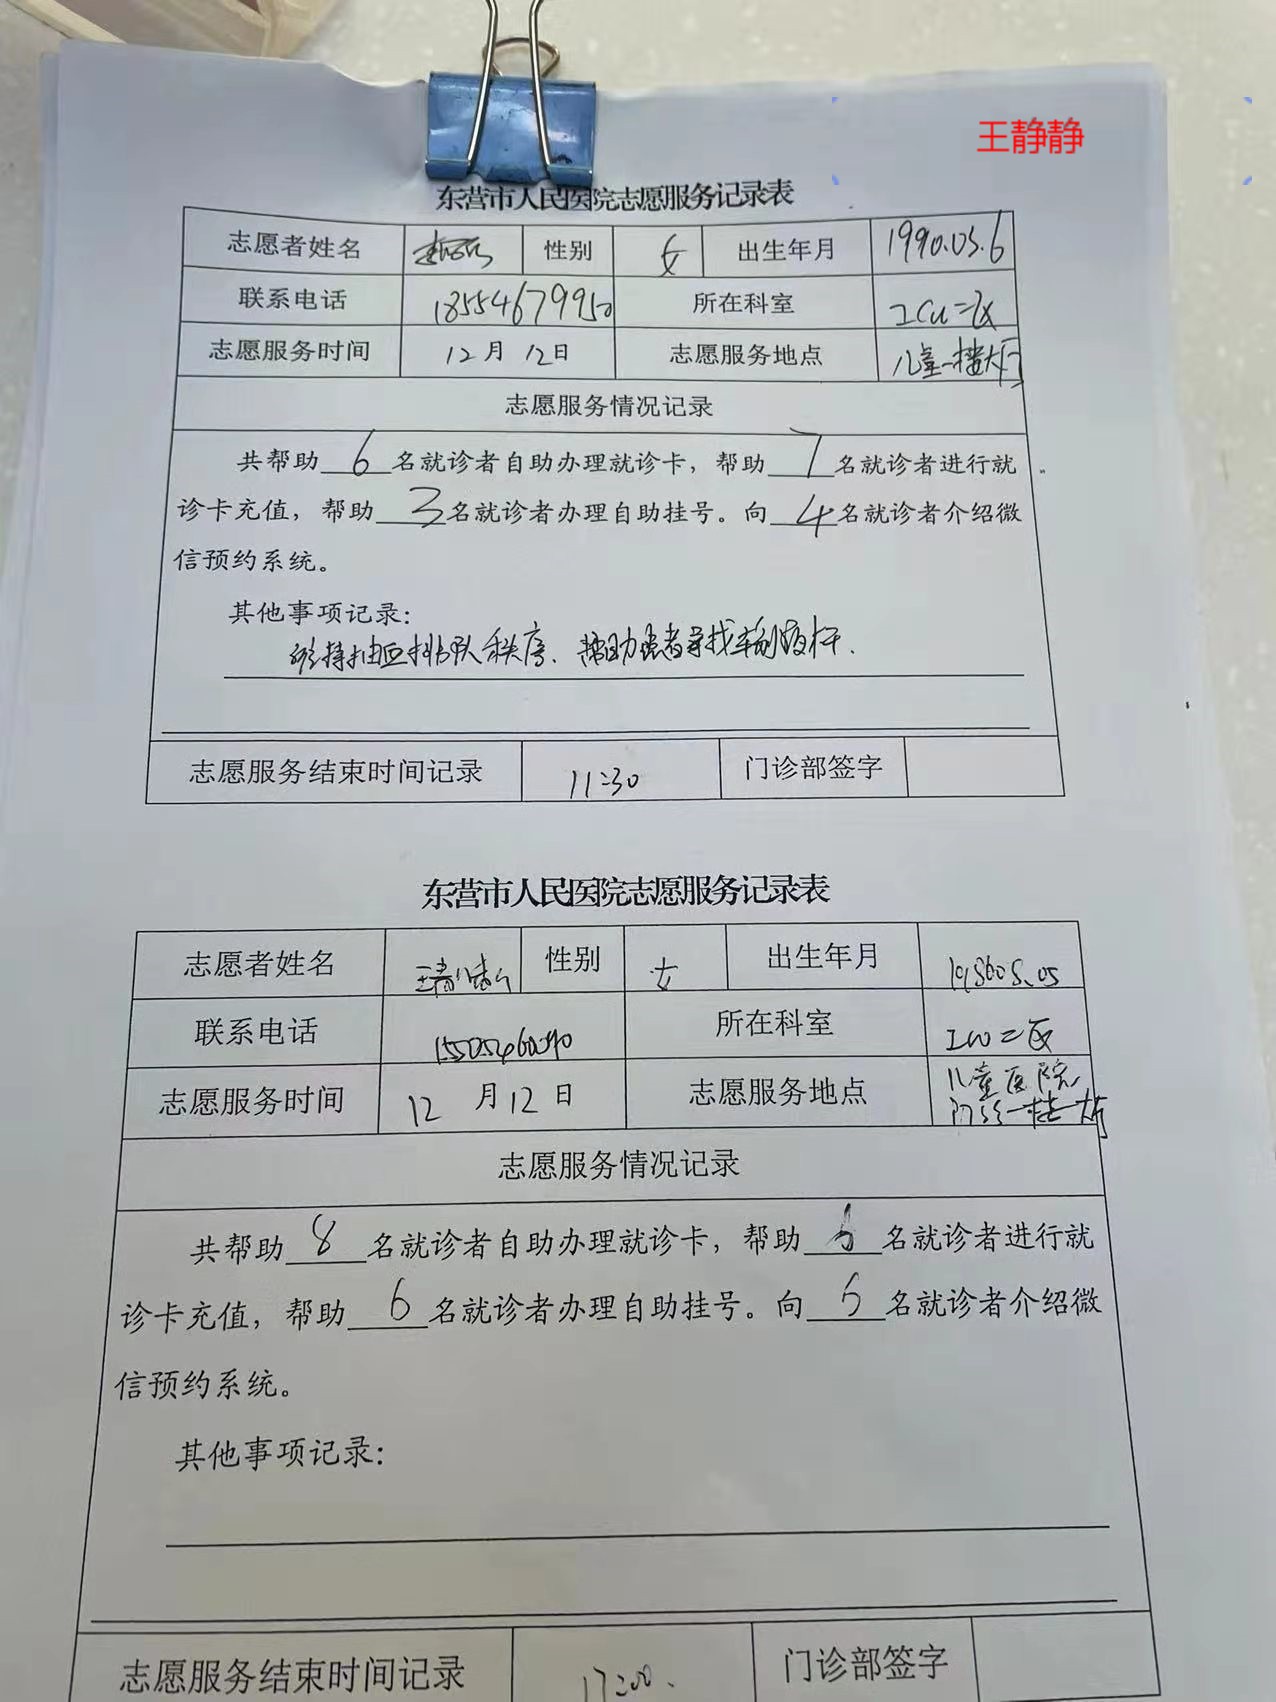 王静静
东营市人民医院志愿服务记录表
志愿者姓名 性别 女 出生年月 1990.05.6
联系电话 18554679950 所在科室 ICU二区
志愿服务时间 12月12日 志愿服务地点 儿童一楼大厅
志愿服务情况记录
共帮助6名就诊者自助办理就诊卡，帮助7名就诊者进行就
诊卡充值，帮助3名就诊者办理自助挂号。向4名就诊者介绍微
信预约系统。
其他事项记录：
维持抽血排队秩序、帮助患者寻找输液杆.
志愿服务结束时间记录 11:30 门诊部签字
东营市人民医院志愿服务记录表
志愿者姓名 王静静 性别 女 出生年月
联系电话 所在科室 ICU二区
志愿服务时间 12月12日 志愿服务地点 儿童医院
门诊一楼大厅
志愿服务情况记录
共帮助8名就诊者自助办理就诊卡，帮助名就诊者进行就
诊卡充值，帮助6名就诊者办理自助挂号。向5名就诊者介绍微
信预约系统。
其他事项记录：
志愿服务结束时间记录 17:00. 门诊部签字